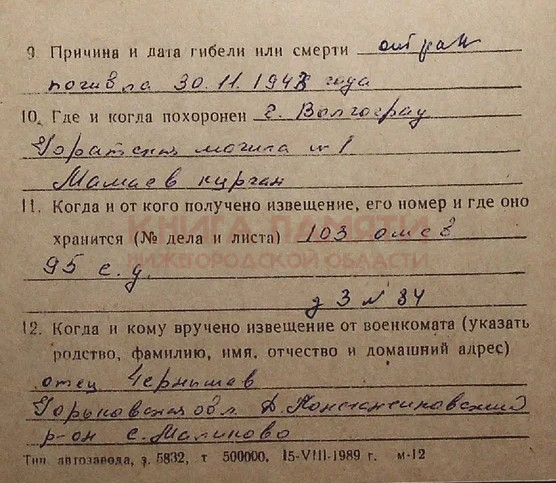 9. Причина и дата гибели или смерти от ран
погибла 30.11.1942 года
10. Где и когда похоронен г. Волгоград
братская могила №1
Мамаев курган
11. Когда и от кого получено извещение, его номер и где оно
КНИГА ПАМЯТИ
хранится (№ дела и листа) 103 омсб
НИЖЕГОРОДСКОЙ ОБЛАСТИ
95 с.д.
д 3 № 84
12. Когда и кому вручено извещение от военкомата (указать
родство, фамилию, имя, отчество и домашний адрес)
отец Чернышев
Горьковская обл. Д.Константиновский
р-он с. Маликово
Тип. автозавода, з. 5832, т 500000. 15-VIII-1989 г. м-12